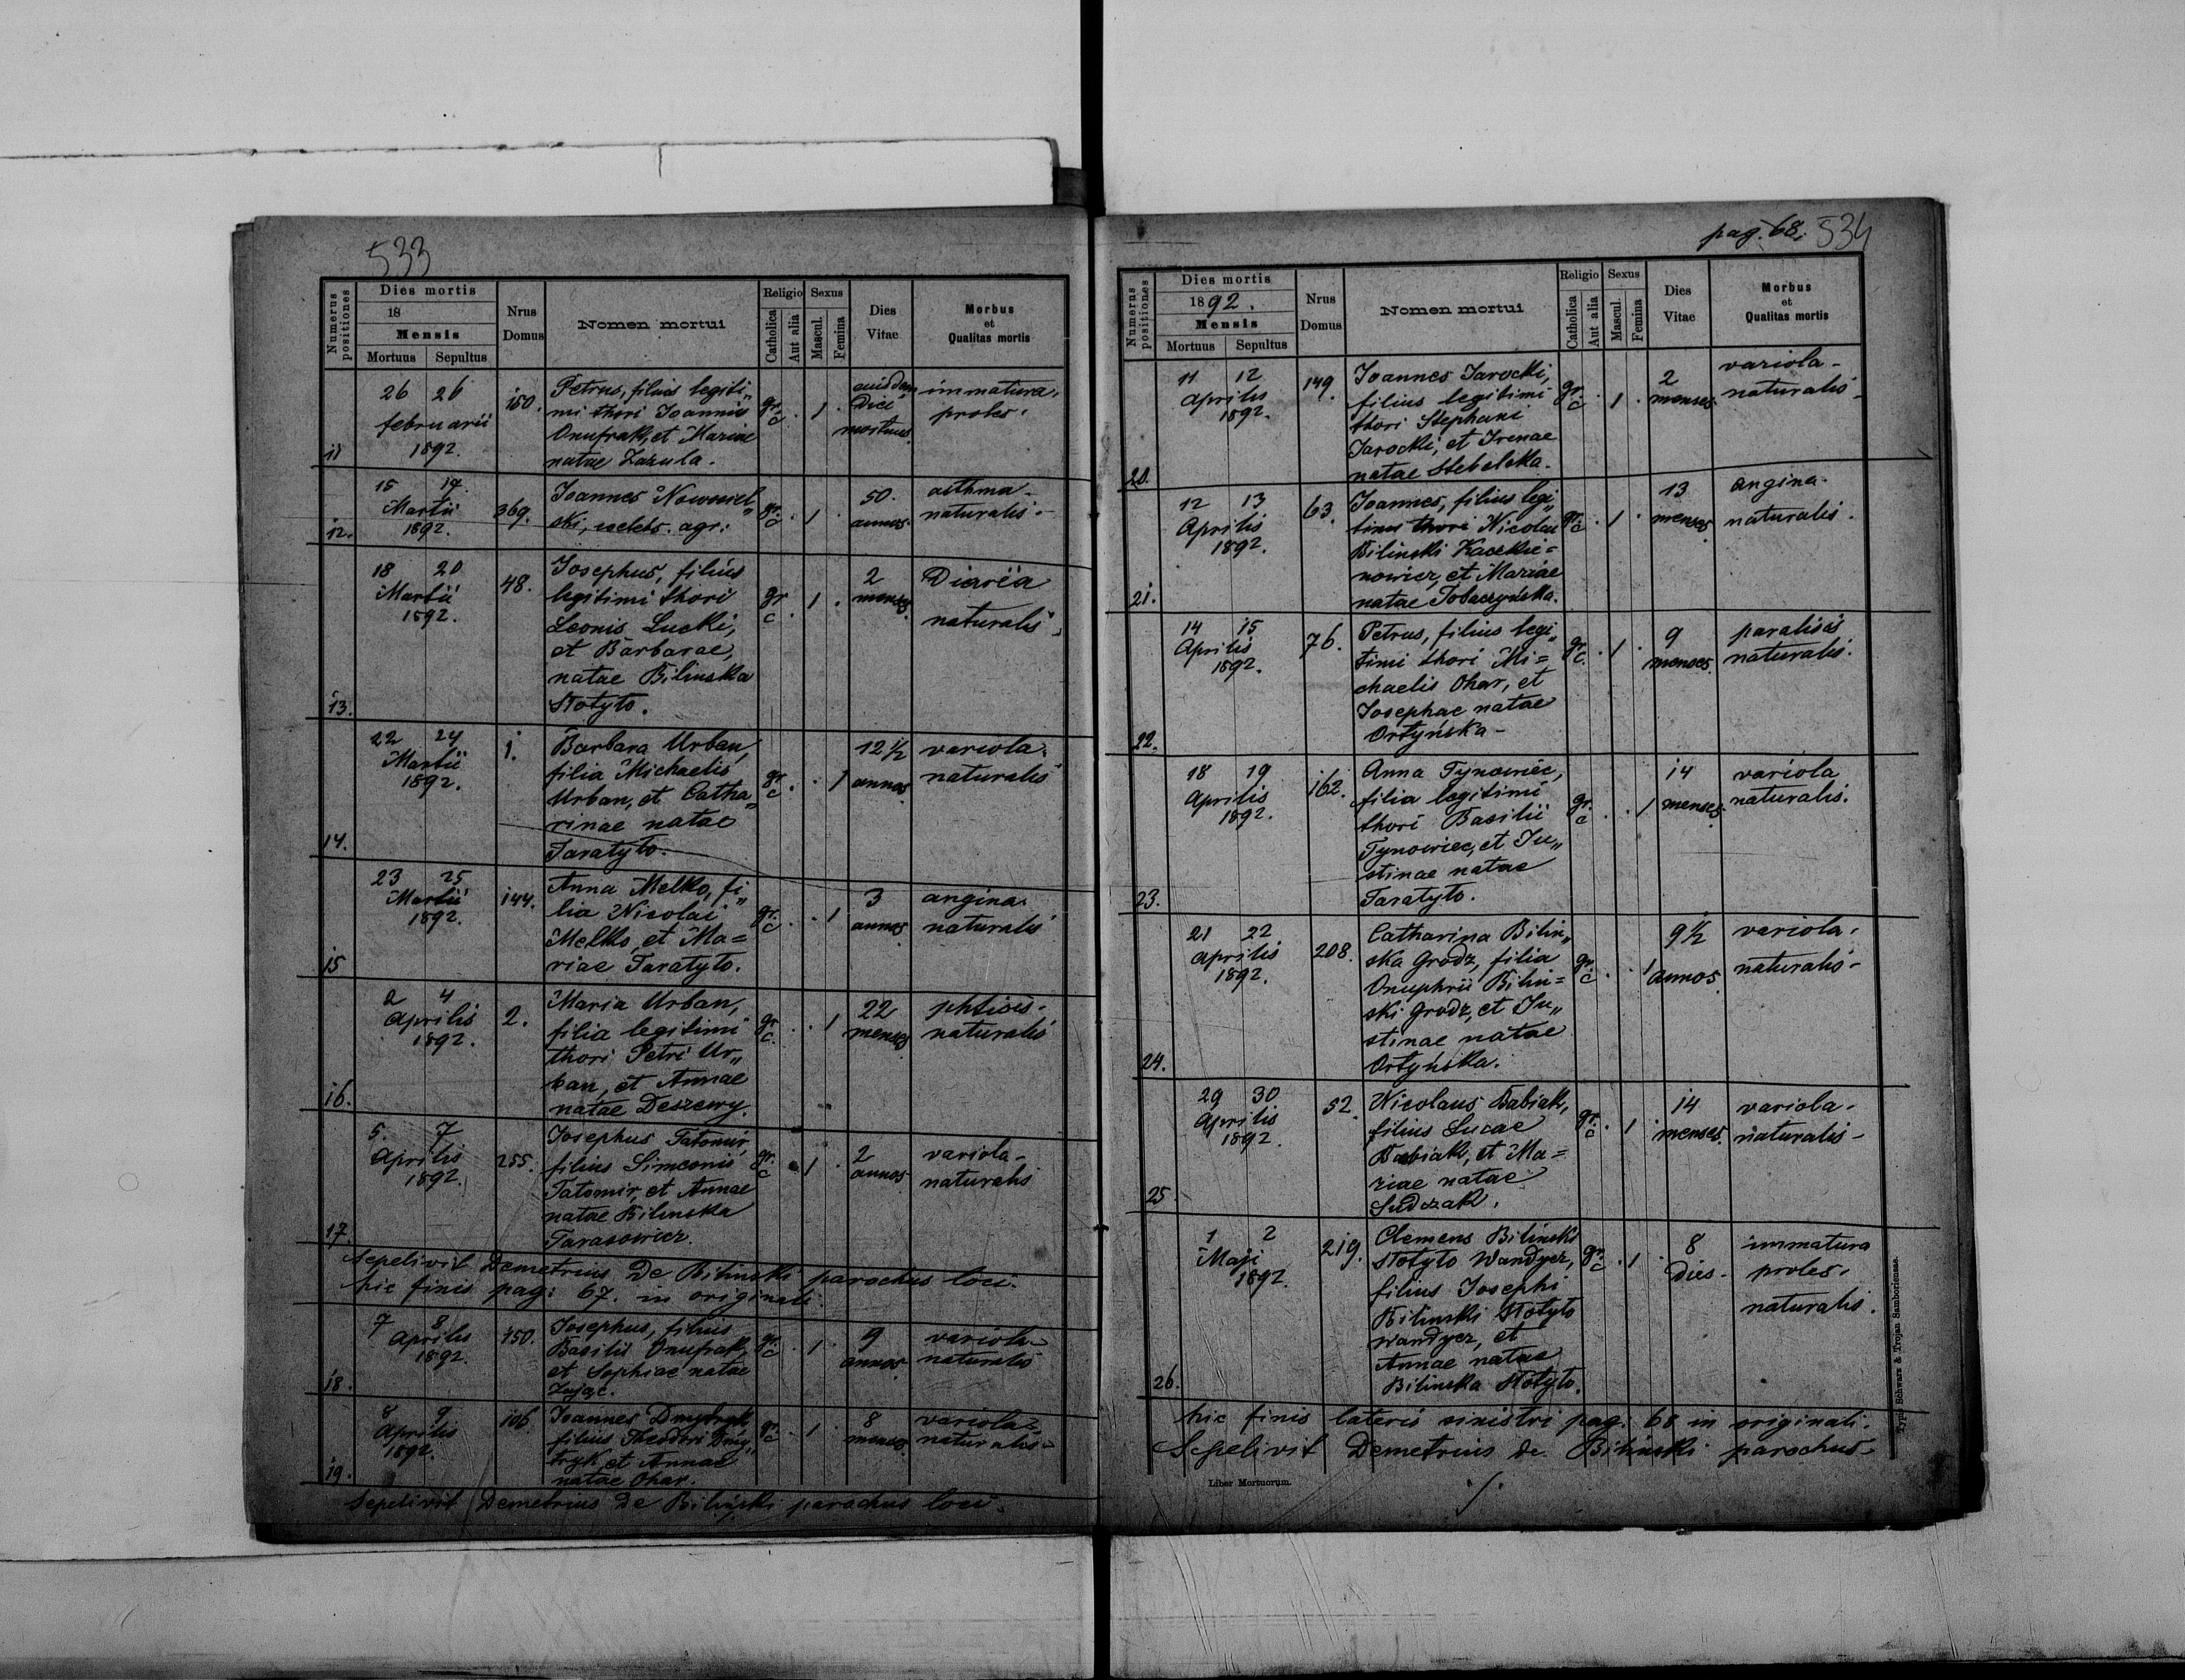 533
Numerus positiones
Dies mortis
18
Mensis
Mortuus Sepultus
Nrus Domus
Nomen mortui
Religio
Catholica
Aut alia
Sexus
Mascul.
Femina
Dies Vitae
Morbus et Qualitas mortis
11 26 26 februarii 1892. 150. Petrus, filius legiti„ gr. c . 1 . eiusdem diei mortuus immatura proles.
mi thori Joannis
Onufrak, et Mariae
natae Zazula.
12. 15 17. Martii 1892. 369. Joannes Nowosiel„ gr. c . 1 . 50. annos. asthma naturalis.
ski, caelebs. agr:
13. 18 20 Martii 1892. 48. Josephus, filius gr c . 1 . 2 menses Diarëa naturalis.
legitimi thori
Leonis Lucki,
et Barbarae,
natae Bilinska
Stotyto.
14. 22 24 Martii 1892. 1. Barbara Urban, gr. c . . 1 12 ½ annos. variola. naturalis
filia Michaelis
Urban, et Catha„
rinae natae
Taratyto.
15 23 25 Martii 1892. 144. Anna Melko, fi„ gr. c . . 1 3 annos angina. naturalis
lia Nicolai
Melko, et Ma=
riae Taratyto.
16. 2 4 Aprilis 1892. 2. Maria Urban, gr. c. . . 1 22 menses phtisis. naturalis
filia legitimi
thori Petri Ur„
ban, et Annae
natae Deszewy.
17. 5. 7 Aprilis 1892. 255. Josephus Tatomir, gr. c . 1 . 2 annos variola. naturalis
filius Simeonis
Tatomir, et Annae
natae Bilinska
Tarasowicz.
Sepelivit Demetrius De Bilinski parochus loci.
hic finis pag: 67. in originali.
18. 7 8 Aprilis 1892. 150. Josephus, filius gr. c . 1 . 9 annos. variola naturalis
Basilii Onufrak,
et Sophiae natae
Zając.
19. 8 9 Aprilis 1892. 106. Joannes Dmytryk, gr. c . 1 . 8 menses. variola. naturalis.
filius Theodori Dmy„
tryk, et Annae
natae Ohar.
Sepelivit Demetrius De Biliński parochus loci.
pag. 68. 534
Numerus positiones
Dies mortis
1892.
Mensis
Mortuus Sepultus
Nrus Domus
Nomen mortui
Religio
Catholica
Aut alia
Sexus
Mascul.
Femina
Dies Vitae
Morbus et Qualitas mortis
20. 11 12 Aprilis 1892. 149. Joannes Jarocki, gr. c . 1 . 2 menses. variola. naturalis.
filius legitimi
thori Stephani
Jarocki, et Irenae
natae Stebelska.
21. 12 13 Aprilis 1892. 63. Joannes, filius legi„ gr. c . 1 . 13 menses. angina. naturalis.
timi thori Nicolai
Bilinski Kaczkie=
nowicz, et Mariae
natae Tobaczyńska.
22. 14 15 Aprilis 1892. 76. Petrus, filius legi„ gr. c. . 1 . 9 menses. paralisis naturalis.
timi thori Mi=
chaelis Ohar, et
Josephae natae
Ortyńska.
23. 18 19 Aprilis 1892. 162. Anna Tynowiec, gr. c . . 1 14 menses. variola naturalis.
filia legitimi
thori Basilii
Tynowiec, et Ju„
stinae natae
Taratyto.
24. 21 22 Aprilis 1892. 208. Catharina Bilin„ gr. c . . 1 9½ annos. variola. naturalis.
ska Grodz, filia
Onuphrii Bilin=
ski Grodz, et Ju„
stinae natae
Ortyńska.
25 29 30 Aprilis 1892. 52. Nicolaus Babiak, gr. c . 1 . 14 menses. variola. naturalis.
filius Lucae
Babiak, et Ma=
riae natae
Sudzak.
26. 1 2 Maji 1892. 219. Clemens Bilinski gr. c . 1 . 8 dies. immatura proles. naturalis.
Stotyto Wandycz,
filius Josephi
Bilinski Stotyto
Wandycz, et
Annae natae
Bilinska Stotyto.
hic finis lateris sinistri pag. 68 in originali.
Sepelivit Demetrius de Biliński parochus.
Liber Mortuorum.
Typis Schwarz & Trojan Samboriensae.